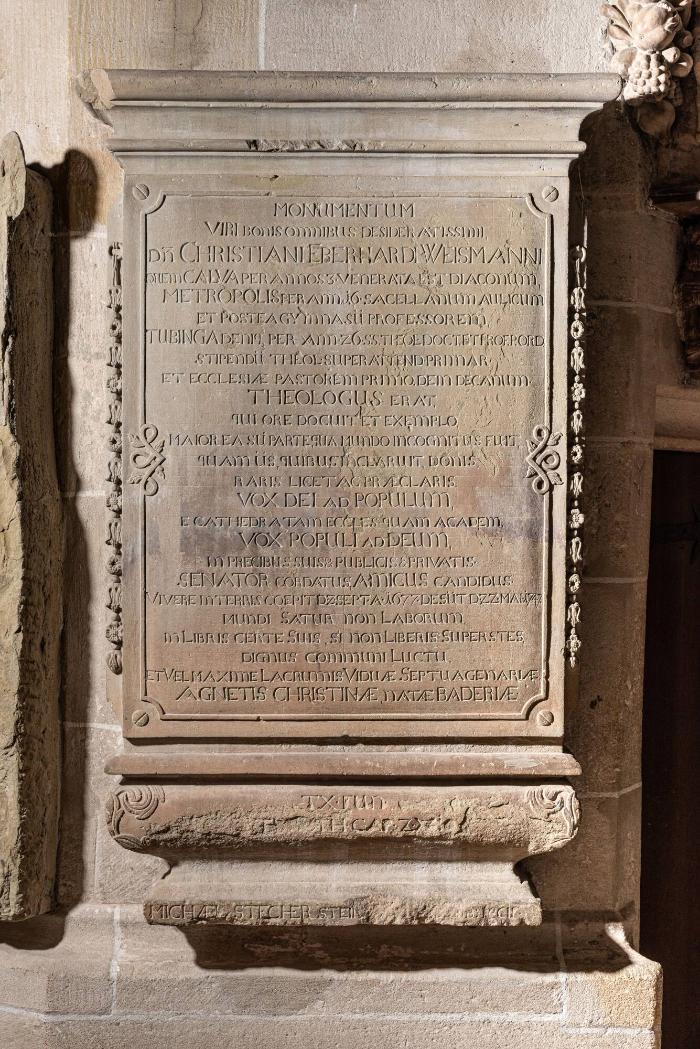 MONUMENTUM
VIRI BONIS OMNIBUS DESIDERATISSIMI,
DN̄ CHRISTIANI EBERHARDI WEISMANNI
QUEM CALVA PER ANNOS 3 VENERATA EST DIACONUM,
METROPOLIS PER ANN. 16 SACELLANUM AULICUM
ET POSTEA GYMNASII PROFESSOREM,
TUBINGA DENIQ, PER ANN. 26. SS. THEOL. DOCT. ET PROF. ORD
STIPENDII THEOL. SUPERATTEND PRIMAR.
ET ECCLESIÆ PASTOREM PRIMO, DEIN DECANUM
THEOLOGUS ERAT,
QUI ORE DOCUIT ET EXEMPLO,
MAIOR EA SUI PARTE QUA MUNDO INCOGNITUS FUIT,
QUAM IIS, QUIBUS INCLARUIT, DONIS,
RARIS LICET AC PRÆCLARIS.
VOX DEI AD POPULUM,
E CATHEDRA TAM ECCLES. QUAM ACADEM,
VOX POPULI AD DEUM,
IN PRECIBUS SUIS & PUBLICIS & PRIVATIS
SENATOR CORDATUS, AMICUS CANDIDUS
VIVERE IN TERRIS COEPIT D. 2 SEPT. A. 1677. DESIIT D. 22 MAI
MUNDI SATUR NON LABORUM,
IN LIBRIS CERTE SUIS, SI NON LIBERIS SUPERSTES,
DIGNUS COMMUNI LUCTU,
ET VEL MAXIME LACRUMIS VIDUÆ SEPTUAGENARIÆ
AGNETIS CHRISTINÆ, NATÆ BADERIÆ
MICHÆL STECHER STEIN